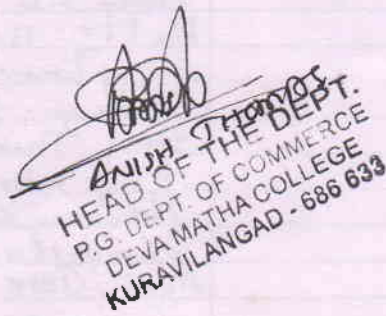 ANISH THOMAS
HEAD OF THE DEPT.
P.G. DEPT. OF COMMERCE
DEVA MATHA COLLEGE
KURAVILANGAD - 686 633